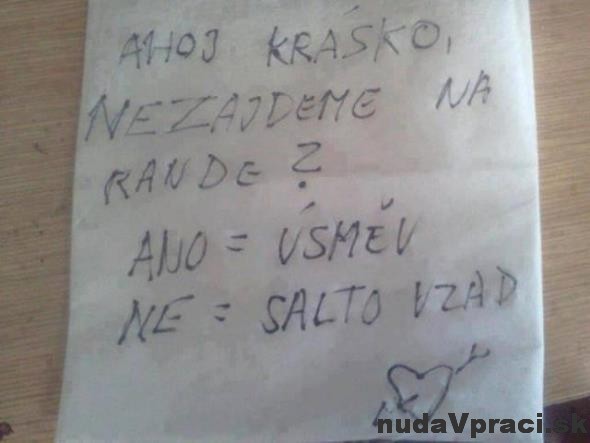 AHOJ KRÁSKO,
NEZAJDEME NA
RANDE?
ANO = ÚSMĚV
NE = SALTO VZAD
nudaVpraci.sk